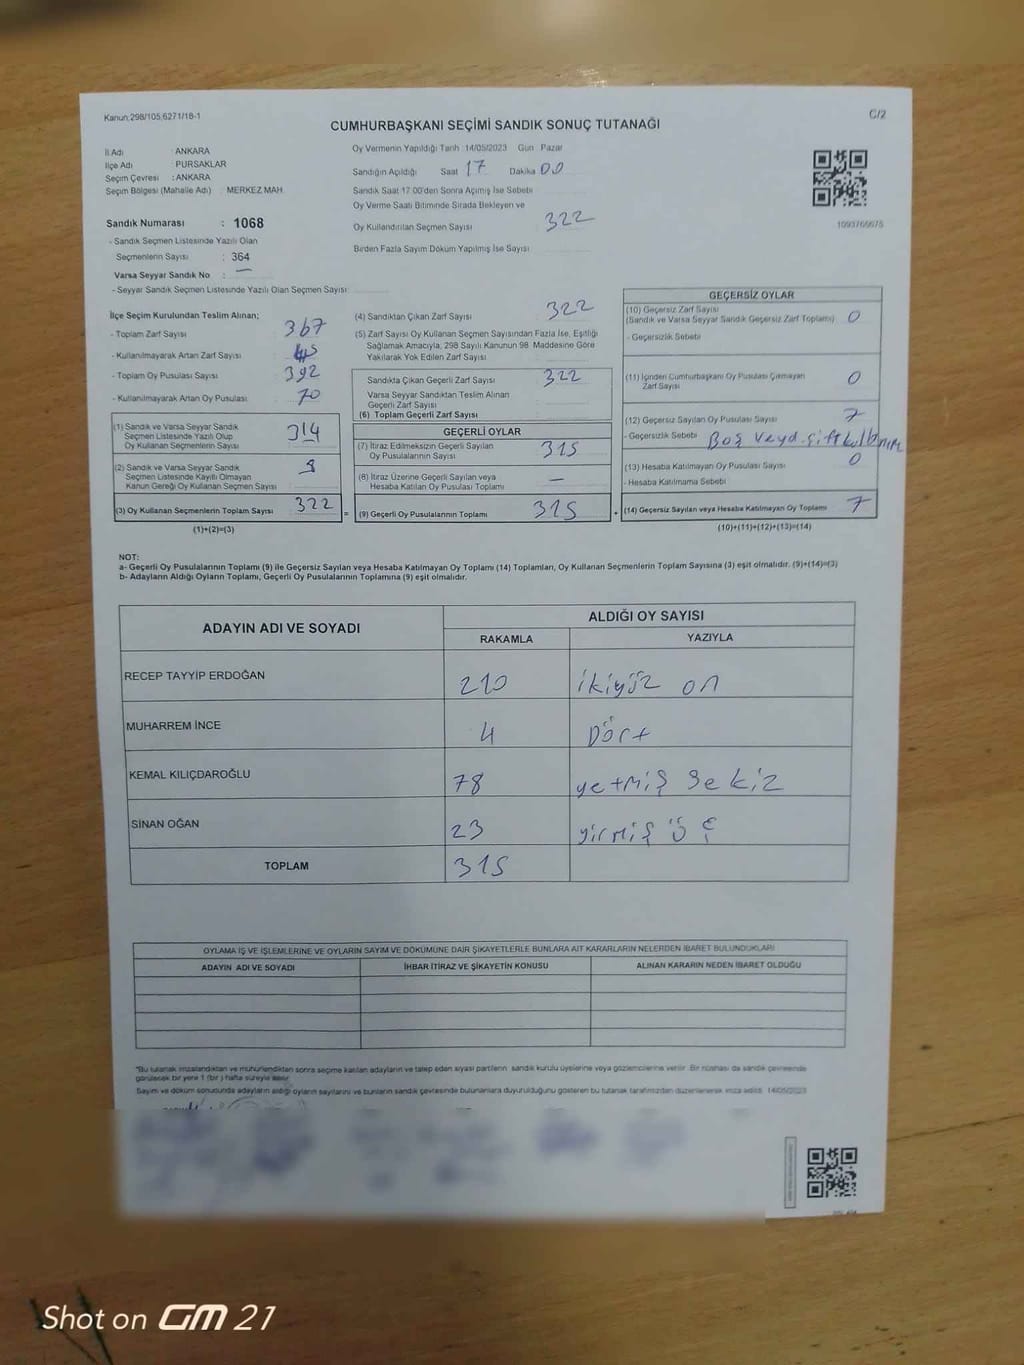 Kanun;298/105,6271/18-1
C/2
CUMHURBAŞKANI SEÇİMİ SANDIK SONUÇ TUTANAĞI
İl Adı : ANKARA
İlçe Adı : PURSAKLAR
Seçim Çevresi : ANKARA
Seçim Bölgesi (Mahalle Adı) : MERKEZ MAH.
Sandık Numarası : 1068
- Sandık Seçmen Listesinde Yazılı Olan
Seçmenlerin Sayısı : 364
Varsa Seyyar Sandık No : —
- Seyyar Sandık Seçmen Listesinde Yazılı Olan Seçmen Sayısı:
Oy Vermenin Yapıldığı Tarih 14/05/2023 Gün Pazar
Sandığın Açıldığı Saat 17 Dakika 00
Sandık Saat 17:00'den Sonra Açımış İse Sebebi
Oy Verme Saati Bitiminde Sırada Bekleyen ve
Oy Kullandırılan Seçmen Sayısı 322
Birden Fazla Sayım Döküm Yapılmış İse Sayısı
1093766675
İlçe Seçim Kurulundan Teslim Alınan;
- Toplam Zarf Sayısı 367
- Kullanılmayarak Artan Zarf Sayısı
- Toplam Oy Pusulası Sayısı 392
- Kullanılmayarak Artan Oy Pusulası 70
(1) Sandık ve Varsa Seyyar Sandık
Seçmen Listesinde Yazılı Olup
Oy Kullanan Seçmenlerin Sayısı 314
(2) Sandık ve Varsa Seyyar Sandık
Seçmen Listesinde Kayıtlı Olmayan
Kanun Gereği Oy Kullanan Seçmen Sayısı 8
(3) Oy Kullanan Seçmenlerin Toplam Sayısı 322
(1)+(2)=(3)
(4) Sandıktan Çıkan Zarf Sayısı 322
(5) Zarf Sayısı Oy Kullanan Seçmen Sayısından Fazla İse, Eşitliği
Sağlamak Amacıyla, 298 Sayılı Kanunun 98 Maddesine Göre
Yakılarak Yok Edilen Zarf Sayısı
Sandıkta Çıkan Geçerli Zarf Sayısı 322
Varsa Seyyar Sandıktan Teslim Alınan
Geçerli Zarf Sayısı
(6) Toplam Geçerli Zarf Sayısı
GEÇERLİ OYLAR
(7) İtiraz Edilmeksizin Geçerli Sayılan
Oy Pusulalarının Sayısı 315
(8) İtiraz Üzerine Geçerli Sayılan veya
Hesaba Katılan Oy Pusulası Toplamı —
= (9) Geçerli Oy Pusulalarının Toplamı 315
GEÇERSİZ OYLAR
(10) Geçersiz Zarf Sayısı
(Sandık ve Varsa Seyyar Sandık Geçersiz Zarf Toplamı) 0
- Geçersizlik Sebebi
(11) İçinden Cumhurbaşkanı Oy Pusulası Çıkmayan
Zarf Sayısı 0
(12) Geçersiz Sayılan Oy Pusulası Sayısı 7
- Geçersizlik Sebebi Boş veya çift kullanım
(13) Hesaba Katılmayan Oy Pusulası Sayısı 0
- Hesaba Katılmama Sebebi
+ (14) Geçersiz Sayılan veya Hesaba Katılmayan Oy Toplamı 7
(10)+(11)+(12)+(13)=(14)
NOT:
a- Geçerli Oy Pusulalarının Toplamı (9) ile Geçersiz Sayılan veya Hesaba Katılmayan Oy Toplamı (14) Toplamları, Oy Kullanan Seçmenlerin Toplam Sayısına (3) eşit olmalıdır. (9)+(14)=(3)
b- Adayların Aldığı Oyların Toplamı, Geçerli Oy Pusulalarının Toplamına (9) eşit olmalıdır.
ADAYIN ADI VE SOYADI
ALDIĞI OY SAYISI
RAKAMLA YAZIYLA
RECEP TAYYİP ERDOĞAN 210 ikiyüz on
MUHARREM İNCE 4 Dört
KEMAL KILIÇDAROĞLU 78 yetmiş sekiz
SİNAN OĞAN 23 yirmiş üç
TOPLAM 315
OYLAMA İŞ VE İŞLEMLERİNE VE OYLARIN SAYIM VE DÖKÜMÜNE DAİR ŞİKAYETLERLE BUNLARA AİT KARARLARIN NELERDEN İBARET BULUNDUKLARI
ADAYIN ADI VE SOYADI İHBAR İTİRAZ VE ŞİKAYETİN KONUSU ALINAN KARARIN NEDEN İBARET OLDUĞU
"Bu tutanak imzalandıktan ve mühürlendikten sonra seçime katılan adayların ve talep eden siyasi partilerin sandık kurulu üyelerine veya gözlemcilerine verilir. Bir nüshası da sandık çevresinde
görülecek bir yere 1 (bir) hafta süreyle asılır.
Sayım ve döküm sonucunda adayların aldığı oyların sayılarını ve bunların sandık çevresinde bulunanlara duyurulduğunu gösteren bu tutanak tarafımızdan düzenlenerek imza edildi. 14/05/2023
Shot on GM 21